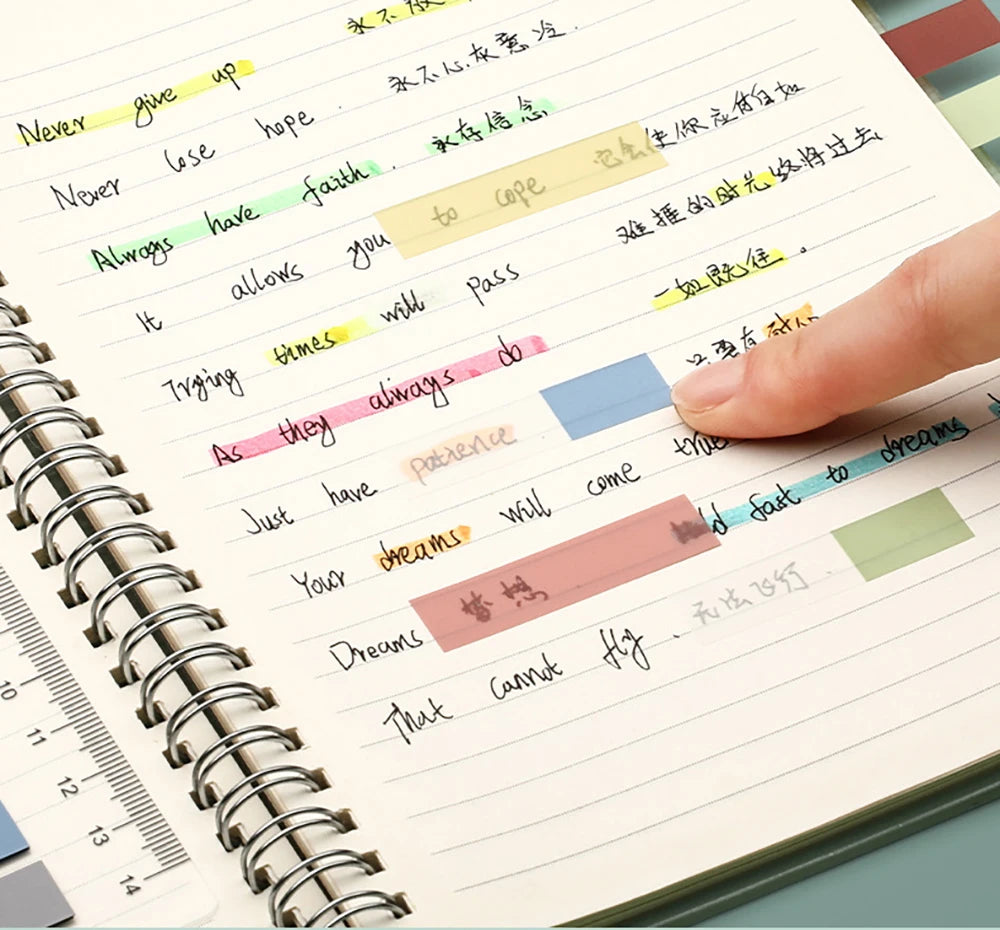 永不放
Never give up
永不心灰意冷.
Never lose hope.
永存信念
Always have faith.
它会使你应付自如
It allows you to cope
难捱的时光终将过去
Trying times will pass
一如既往.
As they always do
只要有耐心
Just have patience.
Your dreams will come true
Hold fast to dreams
Dreams 梦想
无法飞行.
That cannot fly.
10
11
12
13
14